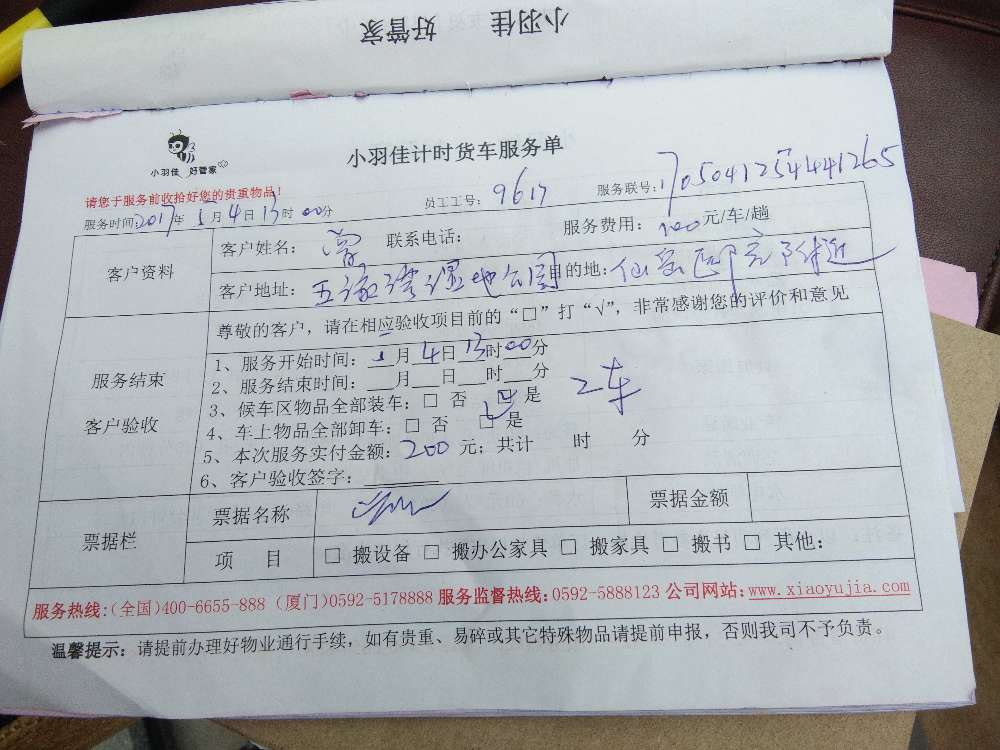 小羽佳 好管家
小羽佳 好管家
小羽佳计时货车服务单
请您于服务前收拾好您的贵重物品!
服务时间:2017年5月4日13时00分 员工工号: 9617 服务联号:1705041254441265
客户资料
客户姓名: 曾 联系电话: 服务费用: 100元/车/趟
客户地址: 五缘湾湿地公园 目的地: 仙岳医院附近
服务结束
客户验收
尊敬的客户,请在相应验收项目前的“□”打“√”,非常感谢您的评价和意见
1、服务开始时间: 5月4日13时00分
2、服务结束时间:___月___日___时___分
3、候车区物品全部装车:□ 否 □ 是 2车
4、车上物品全部卸车:□ 否 □ 是
5、本次服务实付金额: 200 元;共计 时 分
6、客户验收签字:
票据栏
票据名称 票据金额
项 目 □ 搬设备 □ 搬办公家具 □ 搬家具 □ 搬书 □ 其他:
服务热线:(全国)400-6655-888 (厦门)0592-5178888 服务监督热线:0592-5888123 公司网站:www.xiaoyujia.com
温馨提示:请提前办理好物业通行手续,如有贵重、易碎或其它特殊物品请提前申报,否则我司不予负责。